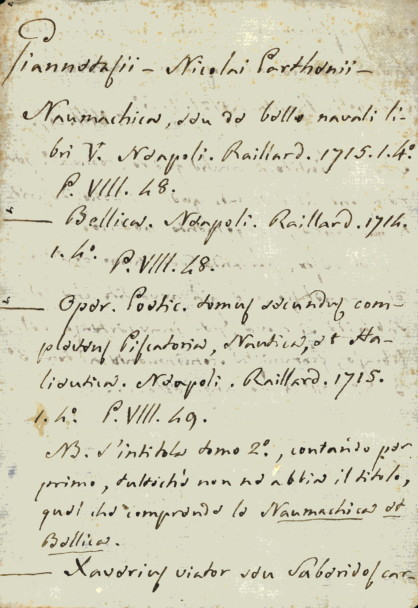 Giannettasii - Nicolai Parthenii -
Naumachica, seu de bello navali li-
bri V. Neapoli. Raillard. 1715. 1. 4°.
P. VIII. 48.
— Bellica. Neapoli. Raillard. 1714.
1. 4°. P. VIII. 48.
— Oper. Poetic. tomus secundus com-
plectens Piscatoria, Nautica, et Ha-
lieutica. Neapoli. Raillard. 1715.
1. 4°. P. VIII. 49.
NB. s'intitola tomo 2°., contando per
primo, tuttochè non ne abbia il titolo,
quel che comprende le Naumachica et
Bellica.
— Xaverius viator seu Saberidos car-